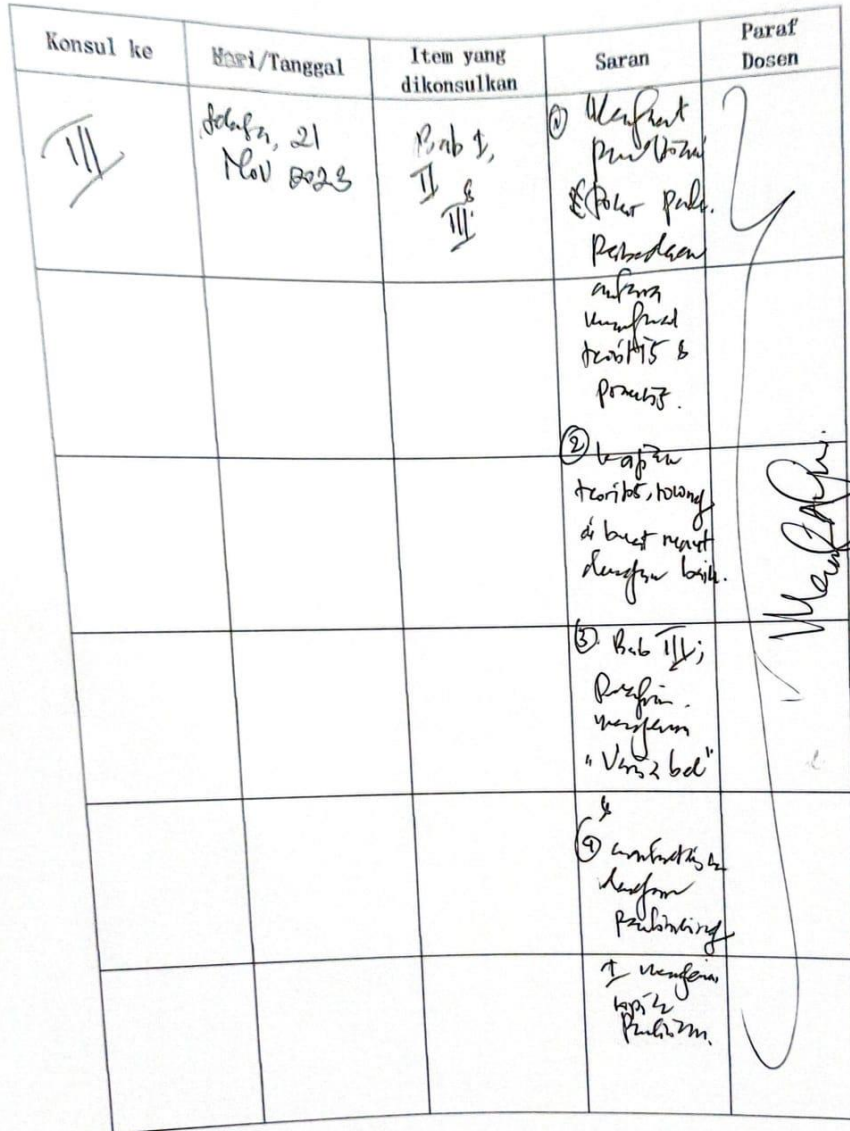 Konsul ke
Hari/Tanggal
Item yang
dikonsulkan
Saran
Paraf
Dosen
III
Selasa, 21
Nov 2023
Bab I,
II &
III
① Manfaat
penelitian
pada
Perbedaan
antara
manfaat
teoritis &
praktis.
② kajian
teoritis, tolong
di buat
dengan baik.
③ Bab III;
mengenai
"Variabel"
④
dengan
Pembimbing
I mengenai
topik
Penelitian.